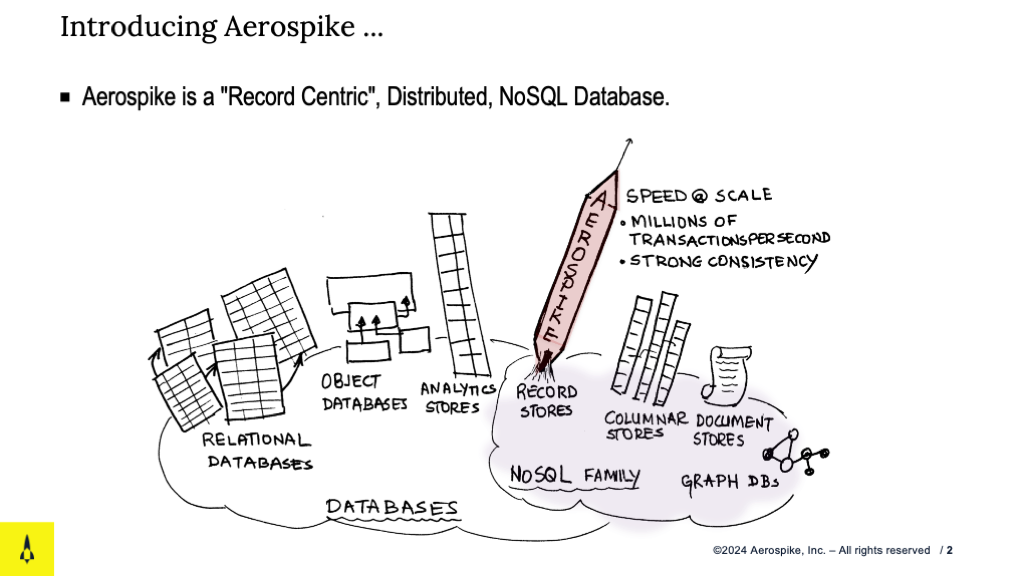 Introducing Aerospike ...
▪ Aerospike is a "Record Centric", Distributed, NoSQL Database.
AEROSPIKE
SPEED @ SCALE
• MILLIONS OF
TRANSACTIONS PER SECOND
• STRONG CONSISTENCY
OBJECT
DATABASES
ANALYTICS
STORES
RECORD
STORES
COLUMNAR
STORES
DOCUMENT
STORES
RELATIONAL
DATABASES
NOSQL FAMILY
GRAPH DBs
DATABASES
©2024 Aerospike, Inc. – All rights reserved / 2